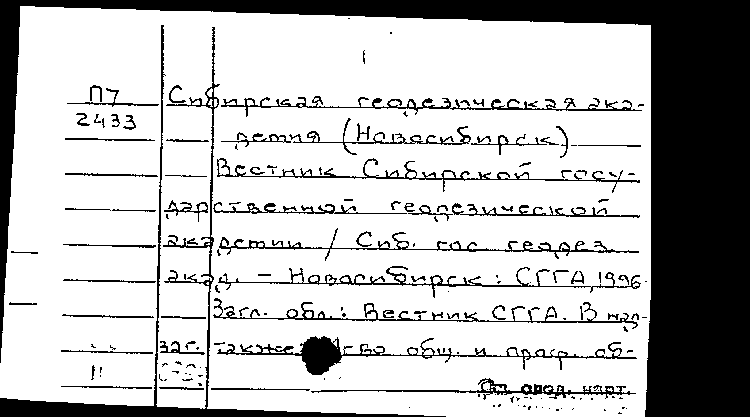 1
П7 Сибирская геодезическая ака-
2433 демия (Новосибирск)
Вестник Сибирской госу-
дарственной геодезической
академии / Сиб. гос. геодез.
акад. – Новосибирск : СГГА, 1996
Загл. обл.: Вестник СГГА. В над-
заг. также: -во общ. и проф. об-
См. след. карт.